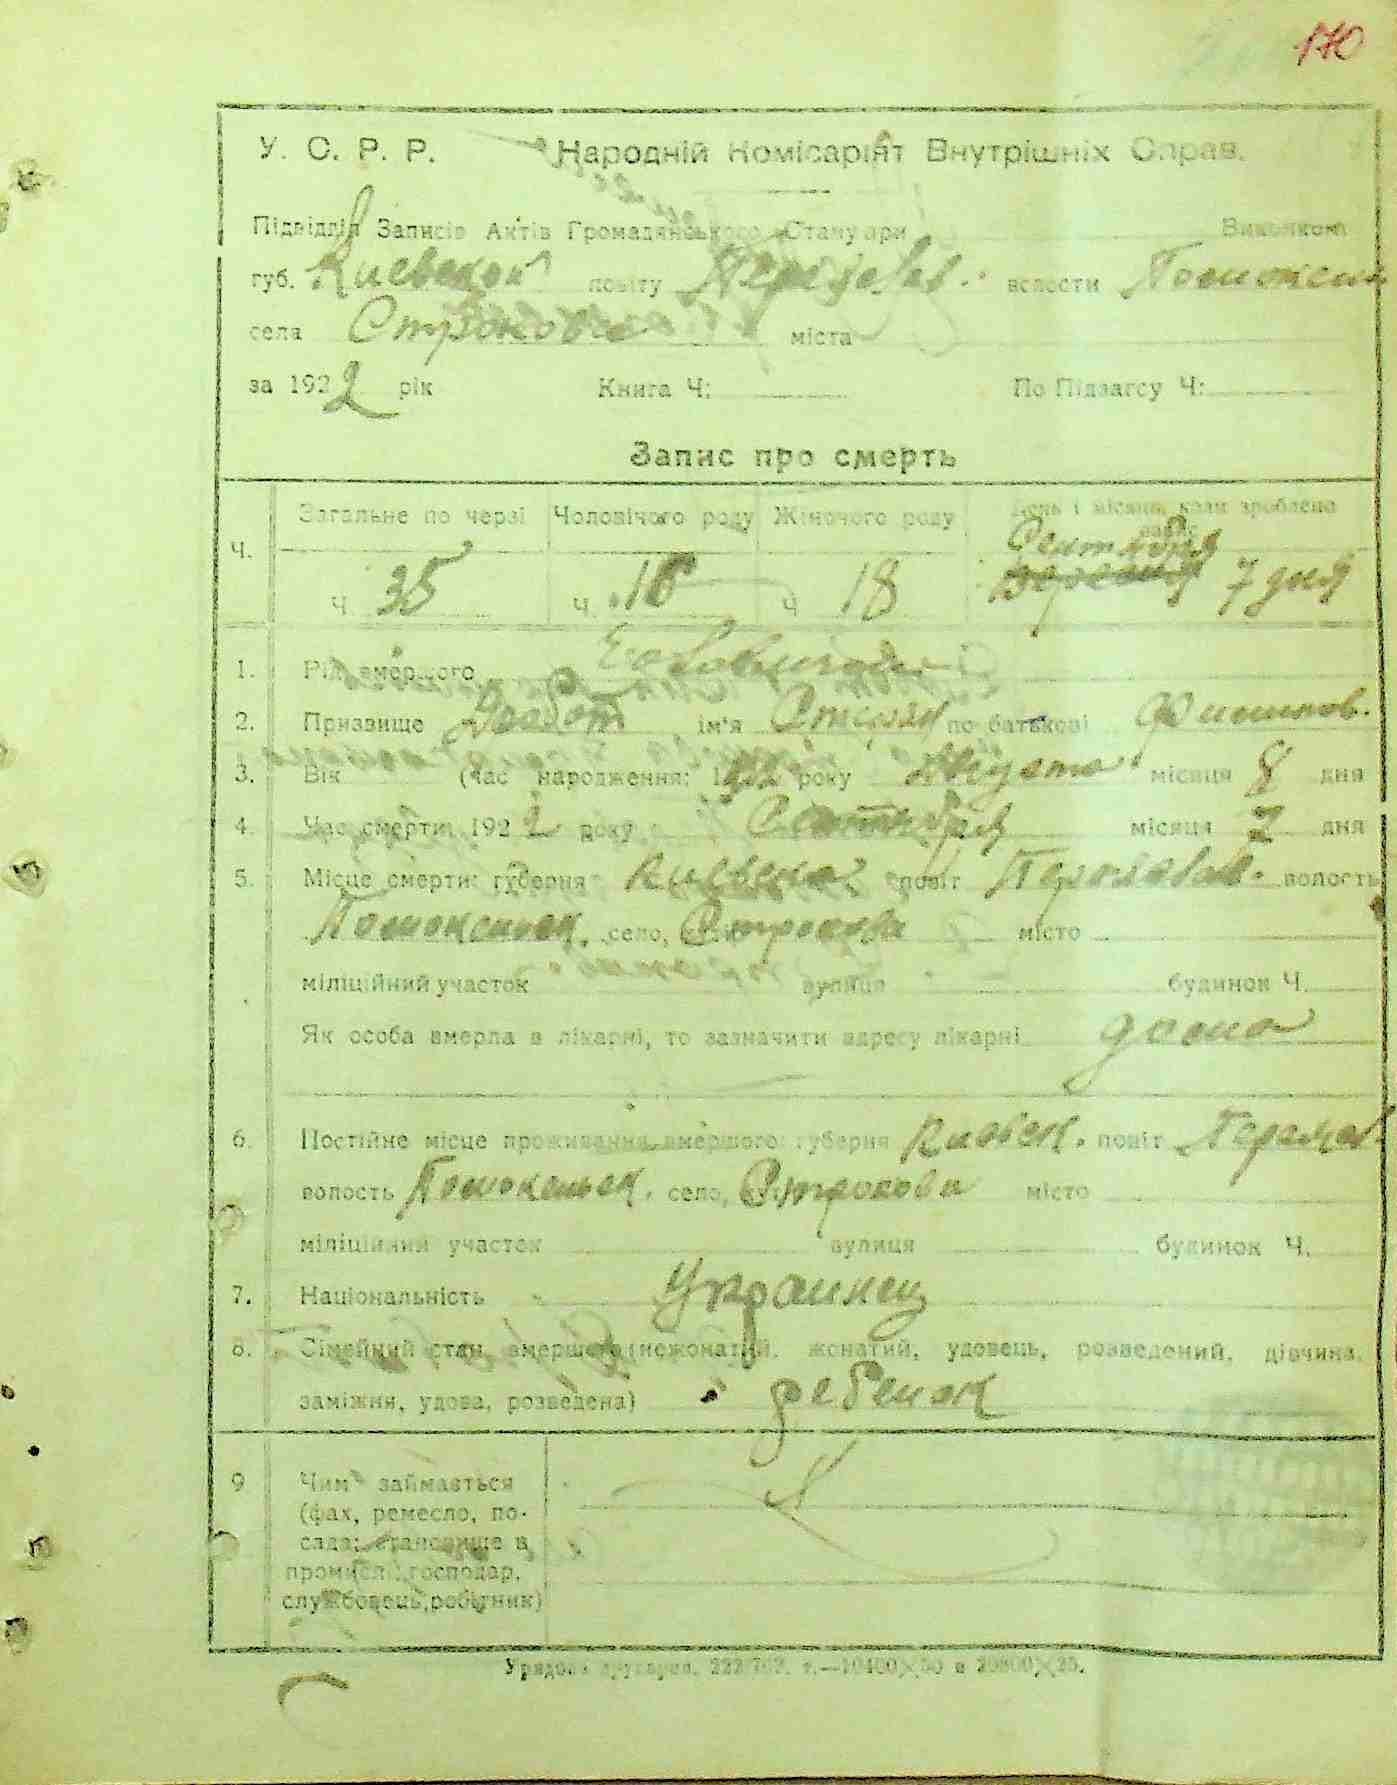 170
У. С. Р. Р. Народній Комісаріят Внутрішніх Справ.
Підвідділ Записів Актів Громадянського Стану при Виконком
губ. Киевской повіту волости
села Строкова міста
за 1922 рік Книга Ч: По Підзагсу Ч:
Запис про смерть
Загальне по черзі Чоловічого роду Жіночого роду День і місяць коли зроблено
Ч. запис
Сентября
Ч. 35 Ч. Ч 18 7 дня
1. Рід вмершого
2. Призвище ім'я по батькові
3. Вік (час народження: року Августа місяця 8 дня
4. Час смерти: 1922 року Сентября місяця 7 дня
5. Місце смерти: губерня Киевска повіт волость
село, Строкова місто
міліційний участок вулиця будинок Ч.
Як особа вмерла в лікарні, то зазначити адресу лікарні дома
6. Постійне місце проживання вмершого: губерня Киевск. повіт
волость село, Строкова місто
міліційний участок вулиця будинок Ч.
7. Національність Украинец
8. Сімейний стан вмершого (нежонатий, жонатий, удовець, розведений, дівчина,
заміжня, удова, розведена) ребенок
9 Чим займається
(фах, ремесло, по-
сада: становище в
промислі: господар,
службовець, робітник)
Урядова друкарня.